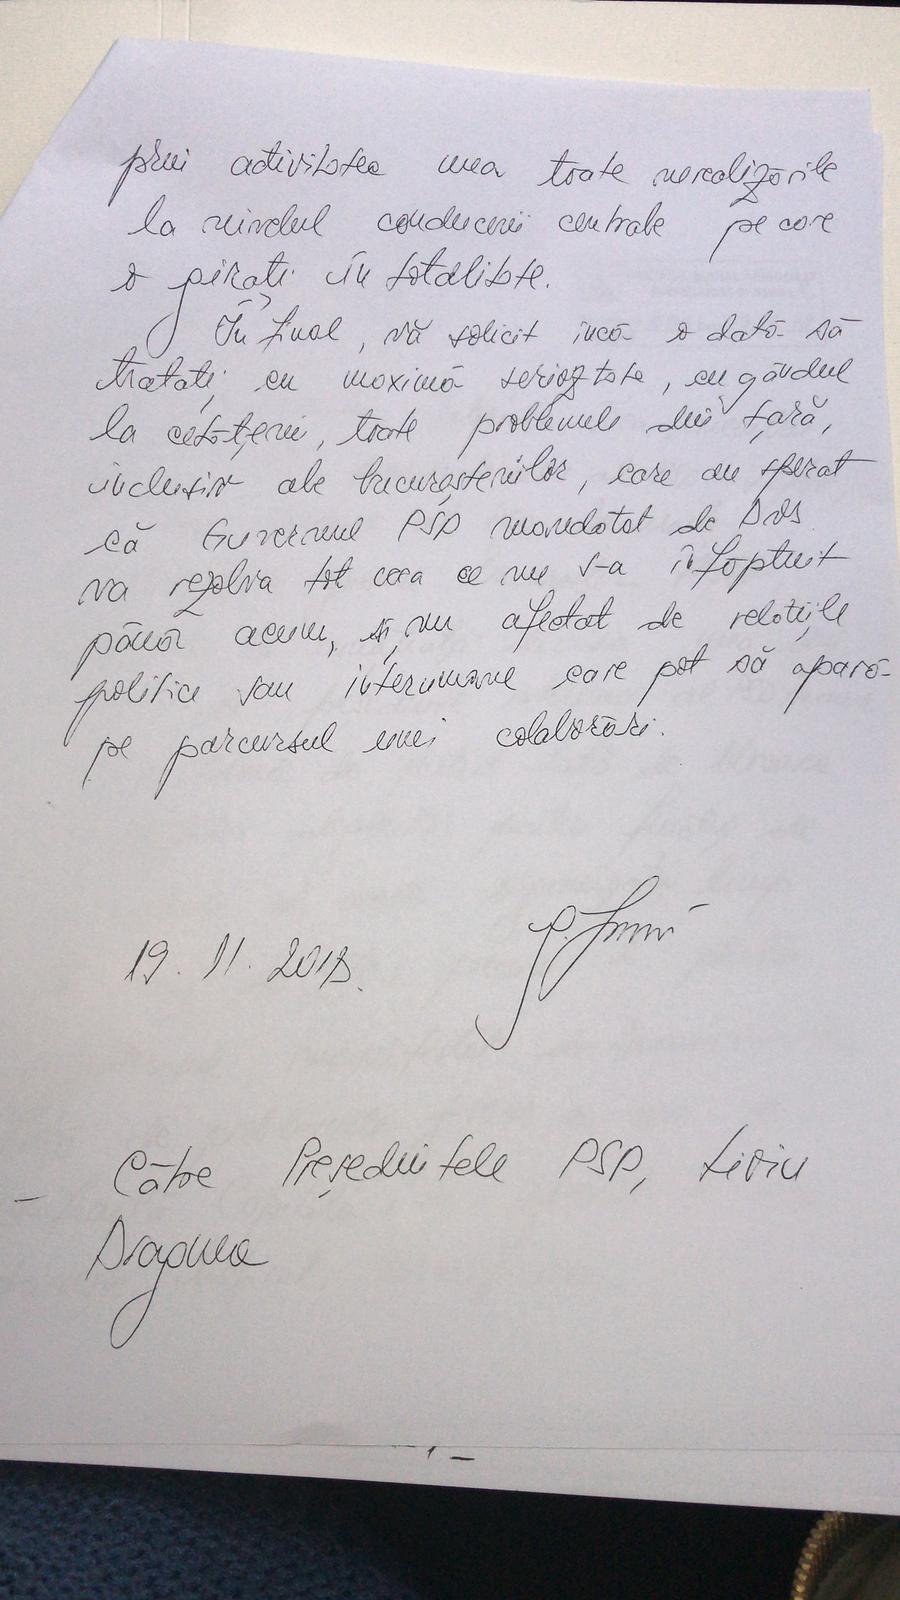 prin activitatea mea toate nerealizările
la nivelul conducerii centrale pe care
o girați în totalitate.
În final, vă solicit încă o dată să
tratați, cu maximă seriozitate, cu gândul
la cetățeni, toate problemele din țară,
inclusiv ale bucureștenilor, care au sperat
că Guvernul PSD mandatat de Dvs
va rezolva tot ceea ce nu s-a înfăptuit
până acum, și nu afectat de relațiile
politice sau interumane care pot să apară
pe parcursul unei colaborări.
19.11.2018.
Către Președintele PSD, Liviu
Dragnea